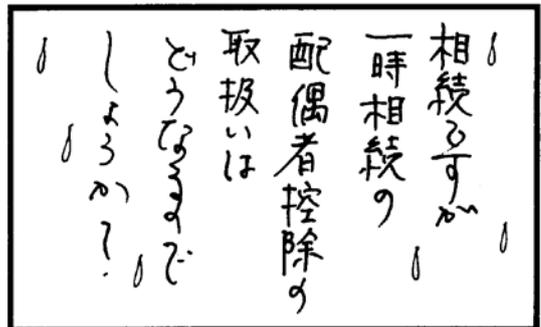 相続ですが
一時相続の
配偶者控除の
取扱いは
どうなるので
しょうか？